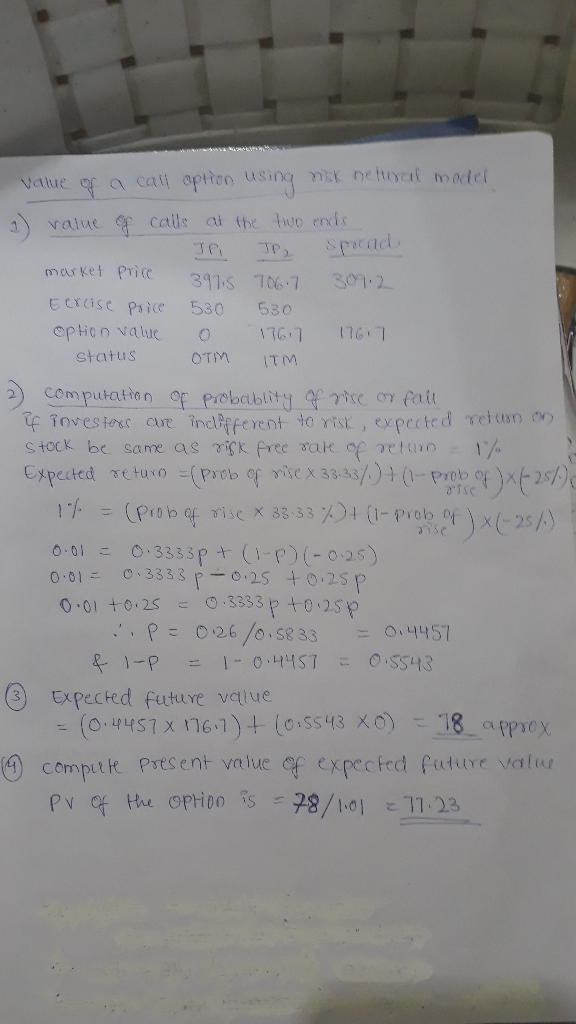 value of a call option using risk netural model
1) value of calls at the two ends
JP1 JP2 spread
market price 397.5 706.7 309.2
Eercise price 530 530
option value 0 176.7 176.7
status OTM ITM
2) computation of probablity of rise or fall
if investors are indifferent to risk, expected return on
stock be same as risk free rate of return = 1%
Expected return = (prob of rise x 33.33%) + (1- prob of rise) x (-25%)
1% = (prob of rise x 33.33%) + (1- prob of rise) x (-25%)
0.01 = 0.3333p + (1-p)(-0.25)
0.01 = 0.3333p - 0.25 + 0.25p
0.01 + 0.25 = 0.3333p + 0.25p
∴ P = 0.26/0.5833 = 0.4457
& 1-P = 1 - 0.4457 = 0.5543
3) Expected future value
= (0.4457 x 176.7) + (0.5543 x 0) = 78 approx
4) compute present value of expected future value
PV of the option is = 78/1.01 = 77.23